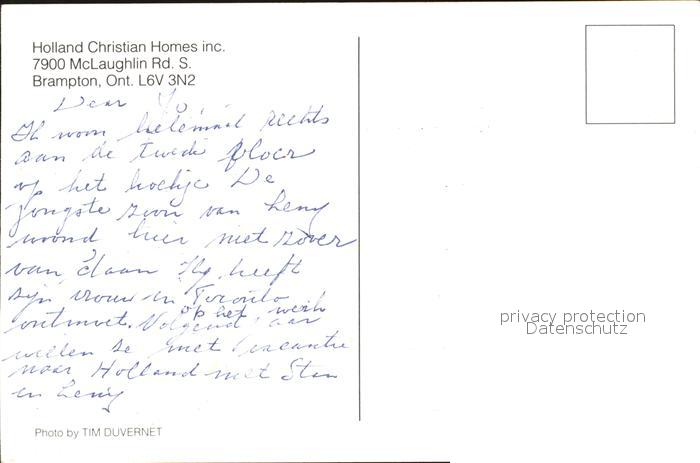 Holland Christian Homes inc.
7900 McLaughlin Rd. S.
Brampton, Ont. L6V 3N2
Dear Yo,
Ik woon helemaal rechts
aan de twede floor
op het hoekje De
jongste zoon van Leny
woond hier niet zover
van daan Hy heeft
zijn vrouw in Toronto
op het werk
ontmoet. Volgend jaar
willen ze met vacantie
naar Holland met Stan
en Leny
Photo by TIM DUVERNET
privacy protection
Datenschutz